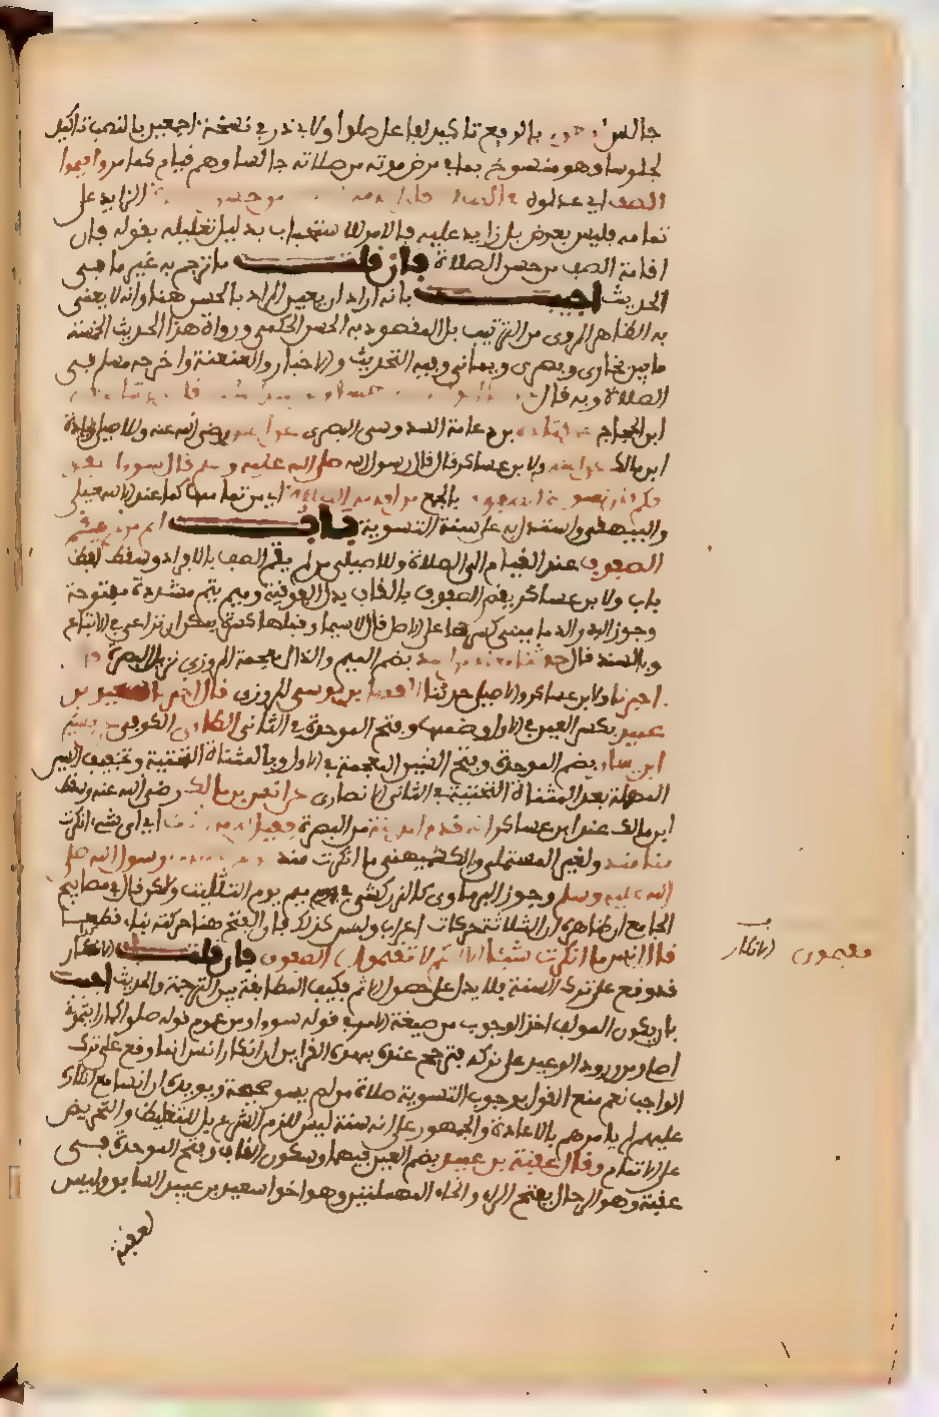 جالس أجمعون بالرفع تاكيد لفاعل صلوا ولابي ذر في نسخة اجمعين بالنصب تاكيد
لجلوسا وهو منسوخ بما في مرض موته من صلاته جالسا وهم قيام كما مر واقيموا
الصف اي عدلوه في الصلاة فان اقامة الزايد على
تمامه فليس بفرض بل زايد عليه فالامر للاستحباب بدليل تعليله بقوله فان
اقامة الصف من حسن الصلاة فان قلت ما ترجم به غير ما في
الحديث اجيب بانه اراد ان يعين المراد بالحسن هنا وانه لا يعنى
به الظاهر المروي من الترتيب بل المقصود به الحسن الحكمي ورواة هذا الحديث الخمسة
ما بين بخاري وبصري ويماني وفيه التحديث والاخبار والعنعنة واخرجه مسلم في
الصلاة وبه قال
ابن الحجاج عن قتادة بن دعامة السدوسي البصري عن انس رضي الله عنه وللاصيلي زيادة
ابن مالك عن النبي ولابن عساكر قال قال رسول الله صلى الله عليه وسلم قال سووا صفوفكم
فان تسوية الصفوف بالجمع من اقامة الصلاة اي من تمامها كما عند الاسمعيلي
والبيهقي واستدل به على سنة التسوية باب اثم من لم يتم
الصفوف عند القيام الى الصلاة وللاصيلي من لم يقم الصف بالافراد وسقط لفظ
باب ولابن عساكر يقم الصفوف بالقاف بدل الفوقية وميم يتم مشددة مفتوحة
وجوز البدر الدماميني كسرها على الاصل قال لاسيما وقبلها كسرة يمكن ان تراعى في الاتباع
وبالسند قال حدثنا معاذ بن اسد بضم الميم والذال معجمة المروزي نزيل البصرة قال
اخبرنا ولابن عساكر والاصيلي حدثنا الفضل بن موسى المروزي قال اخبرنا سعيد بن
عبيد بكسر العين في الاول وضمها وفتح الموحدة في الثاني الطائي الكوفي عن بشير
ابن يسار بضم الموحدة وفتح الشين المعجمة في الاول وبالمثناة التحتية وتخفيف السين
المهملة بعد المثناة التحتية في الثاني الانصاري عن انس بن مالك رضي الله عنه وسقط
ابن مالك عند ابن عساكر انه قدم المدينة من البصرة فقيل له ما انكرت اي اي شيء انكرت
منا منذ ولغير المستملي والكشميهني ما انكرت منذ رسول الله صلى
الله عليه وسلم وجوز البرماوي كالزركشي في ميم يوم التثليث ولكن قال في مصابيح
الجامع ان ظاهره ان الثلاثة حركات اعراب وليس كذلك فان الفتح هنا حركة بناء قطعا
قال انس ما انكرت شيئا الا انكم لا تقيمون الصفوف فان قلت الانكار
قد وقع على ترك السنة فلا يدل على حصول الاثم فكيف المطابقة بين الترجمة والحديث اجيب
بان يكون المولف اخذ الوجوب من صيغة الامر في قوله سووا ومن عموم قوله صلوا كما رايتموني
اصلي ومن ورود الوعيد على تركه فترجح عنده بهذه القراين ان انكار انس انما وقع على ترك
الواجب نعم مع القول بوجوب التسوية صلاة من لم يسو صحيحة ويويده ان انسا مع انكاره
عليهم لم يامرهم بالاعادة والجمهور على انه سنة ليس للزم الشرعي بل للتغليظ والتحريض
على الاتمام وقال عقبة بن عبيد بضم العين فيهما وسكون القاف وفتح الموحدة في
عقبة وهو الرحال بفتح الراء والحاء المهملتين وهو اخو سعيد بن عبيد السابق وليس
لعقبة
تقيمون
الانكار